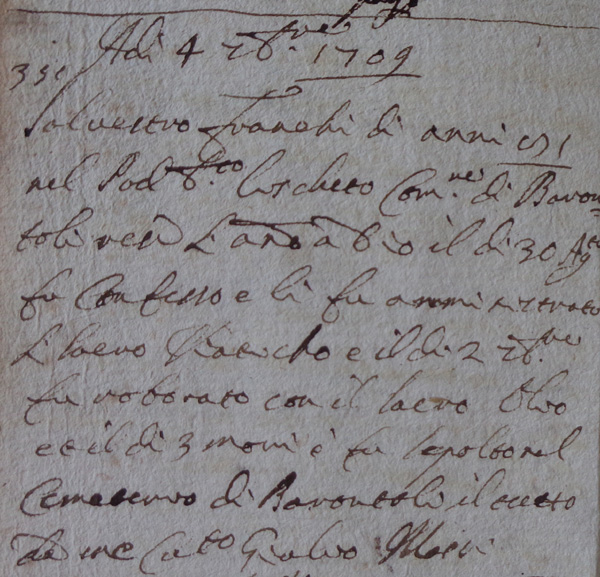 Adi 4 7bre. 1709
Salvestro Franchi di anni 71
nel Pod.e d.to Luscheto Com.ne di Baron=
toli rese l'anima a Dio il di 30 Ag.to
fu Confesso e li fu amministrato
il sacro Viaticho e il di 2 7bre
fu roborato con il sacro Olio
et il di 3 morì e fu sepolto nel
Cemeterio di Barontoli il tutto
da me Cu.to Giulio